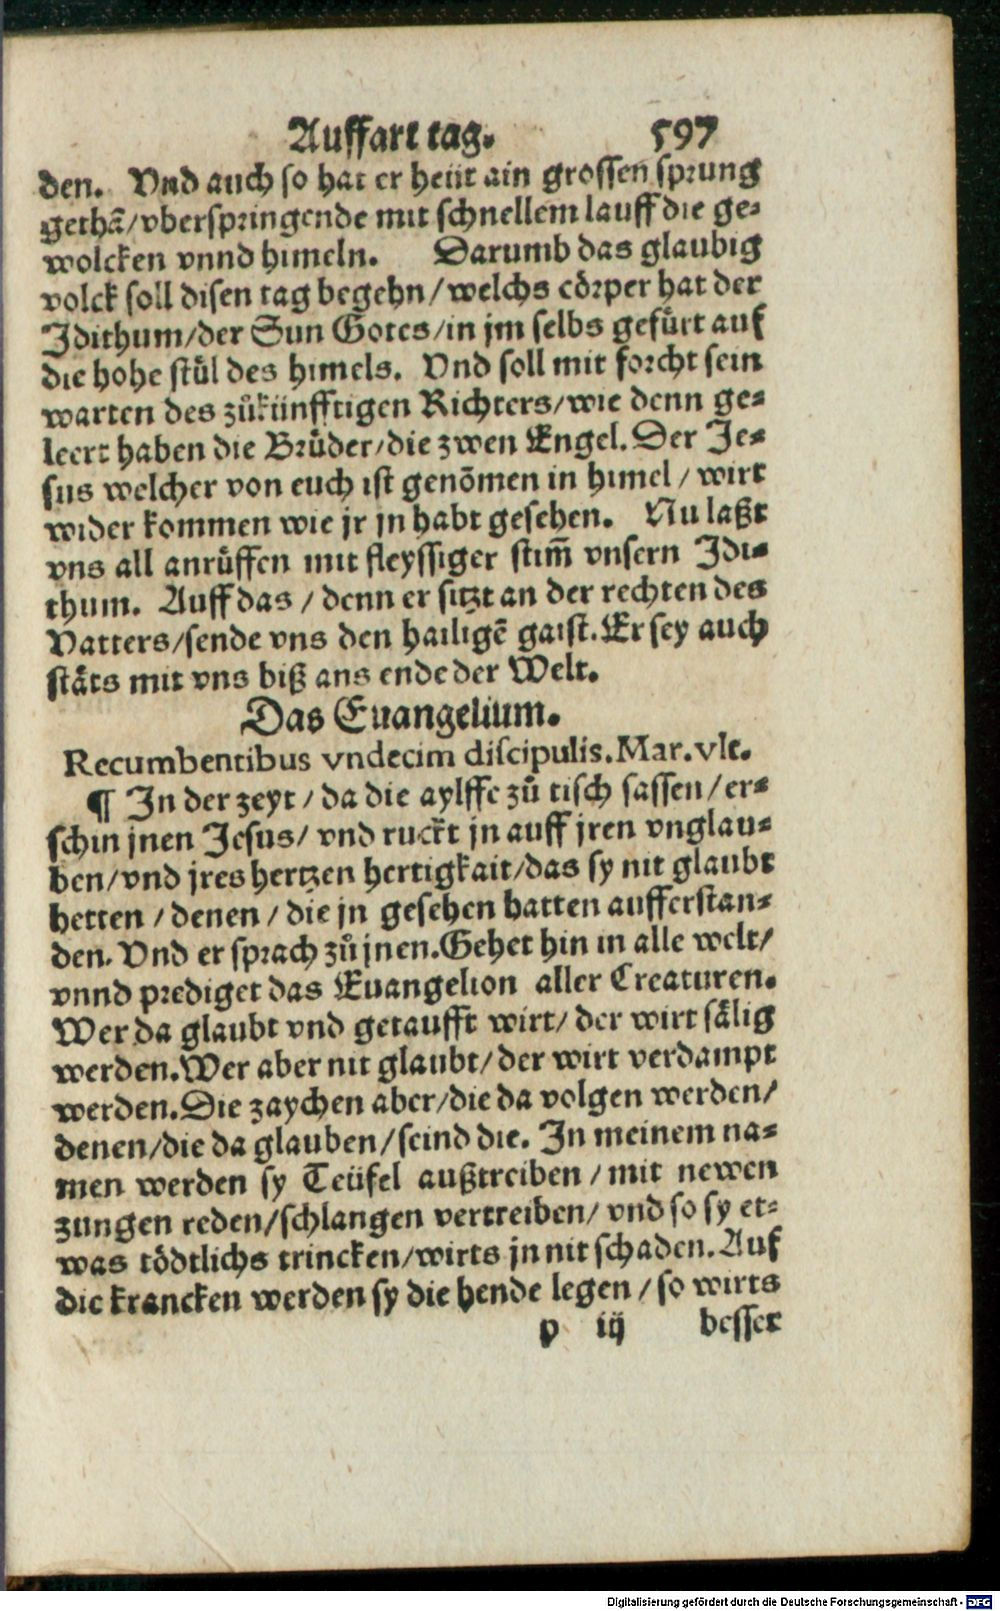 Auffart tag. 597
den. Vnd auch so hat er heüt ain grossen sprung
gethã/vberspringende mit schnellem lauff die ge-
wolcken vnnd himeln. Darumb das glaubig
volck soll disen tag begehn/welchs cörper hat der
Idithum/der Sun Gotes/in jm selbs gefůrt auf
die hohe stůl des himels. Vnd soll mit forcht sein
warten des zůkünfftigen Richters/wie denn ge-
leert haben die Brůder/die zwen Engel. Der Je-
sus welcher von euch ist genõmen in himel / wirt
wider kommen wie jr jn habt gesehen. Nu laßt
vns all anrůffen mit fleyssiger stim̃ vnsern Idi-
thum. Auff das / denn er sitzt an der rechten des
Vatters/sende vns den hailigẽ gaist. Er sey auch
stäts mit vns biß ans ende der Welt.
Das Euangelium.
Recumbentibus vndecim discipulis. Mar. vlt.
¶ In der zeyt / da die aylffe zů tisch sassen/er-
schin jnen Jesus/ vnd ruckt jn auff jren vnglau-
ben/vnd jres hertzen hertigkait/das sy nit glaubt
hetten / denen / die jn gesehen hatten aufferstan-
den. Vnd er sprach zů jnen. Gehet hin in alle welt/
vnnd prediget das Euangelion aller Creaturen.
Wer da glaubt vnd getaufft wirt/ der wirt sälig
werden. Wer aber nit glaubt/der wirt verdampt
werden. Die zaychen aber/die da volgen werden/
denen/die da glauben/seind die. In meinem na-
men werden sy Teüfel außtreiben / mit newen
zungen reden/schlangen vertreiben/ vnd so sy et-
was tödtlichs trincken/wirts jn nit schaden. Auf
die krancken werden sy die hende legen / so wirts
p iij besser
Digitalisierung gefördert durch die Deutsche Forschungsgemeinschaft - DFG